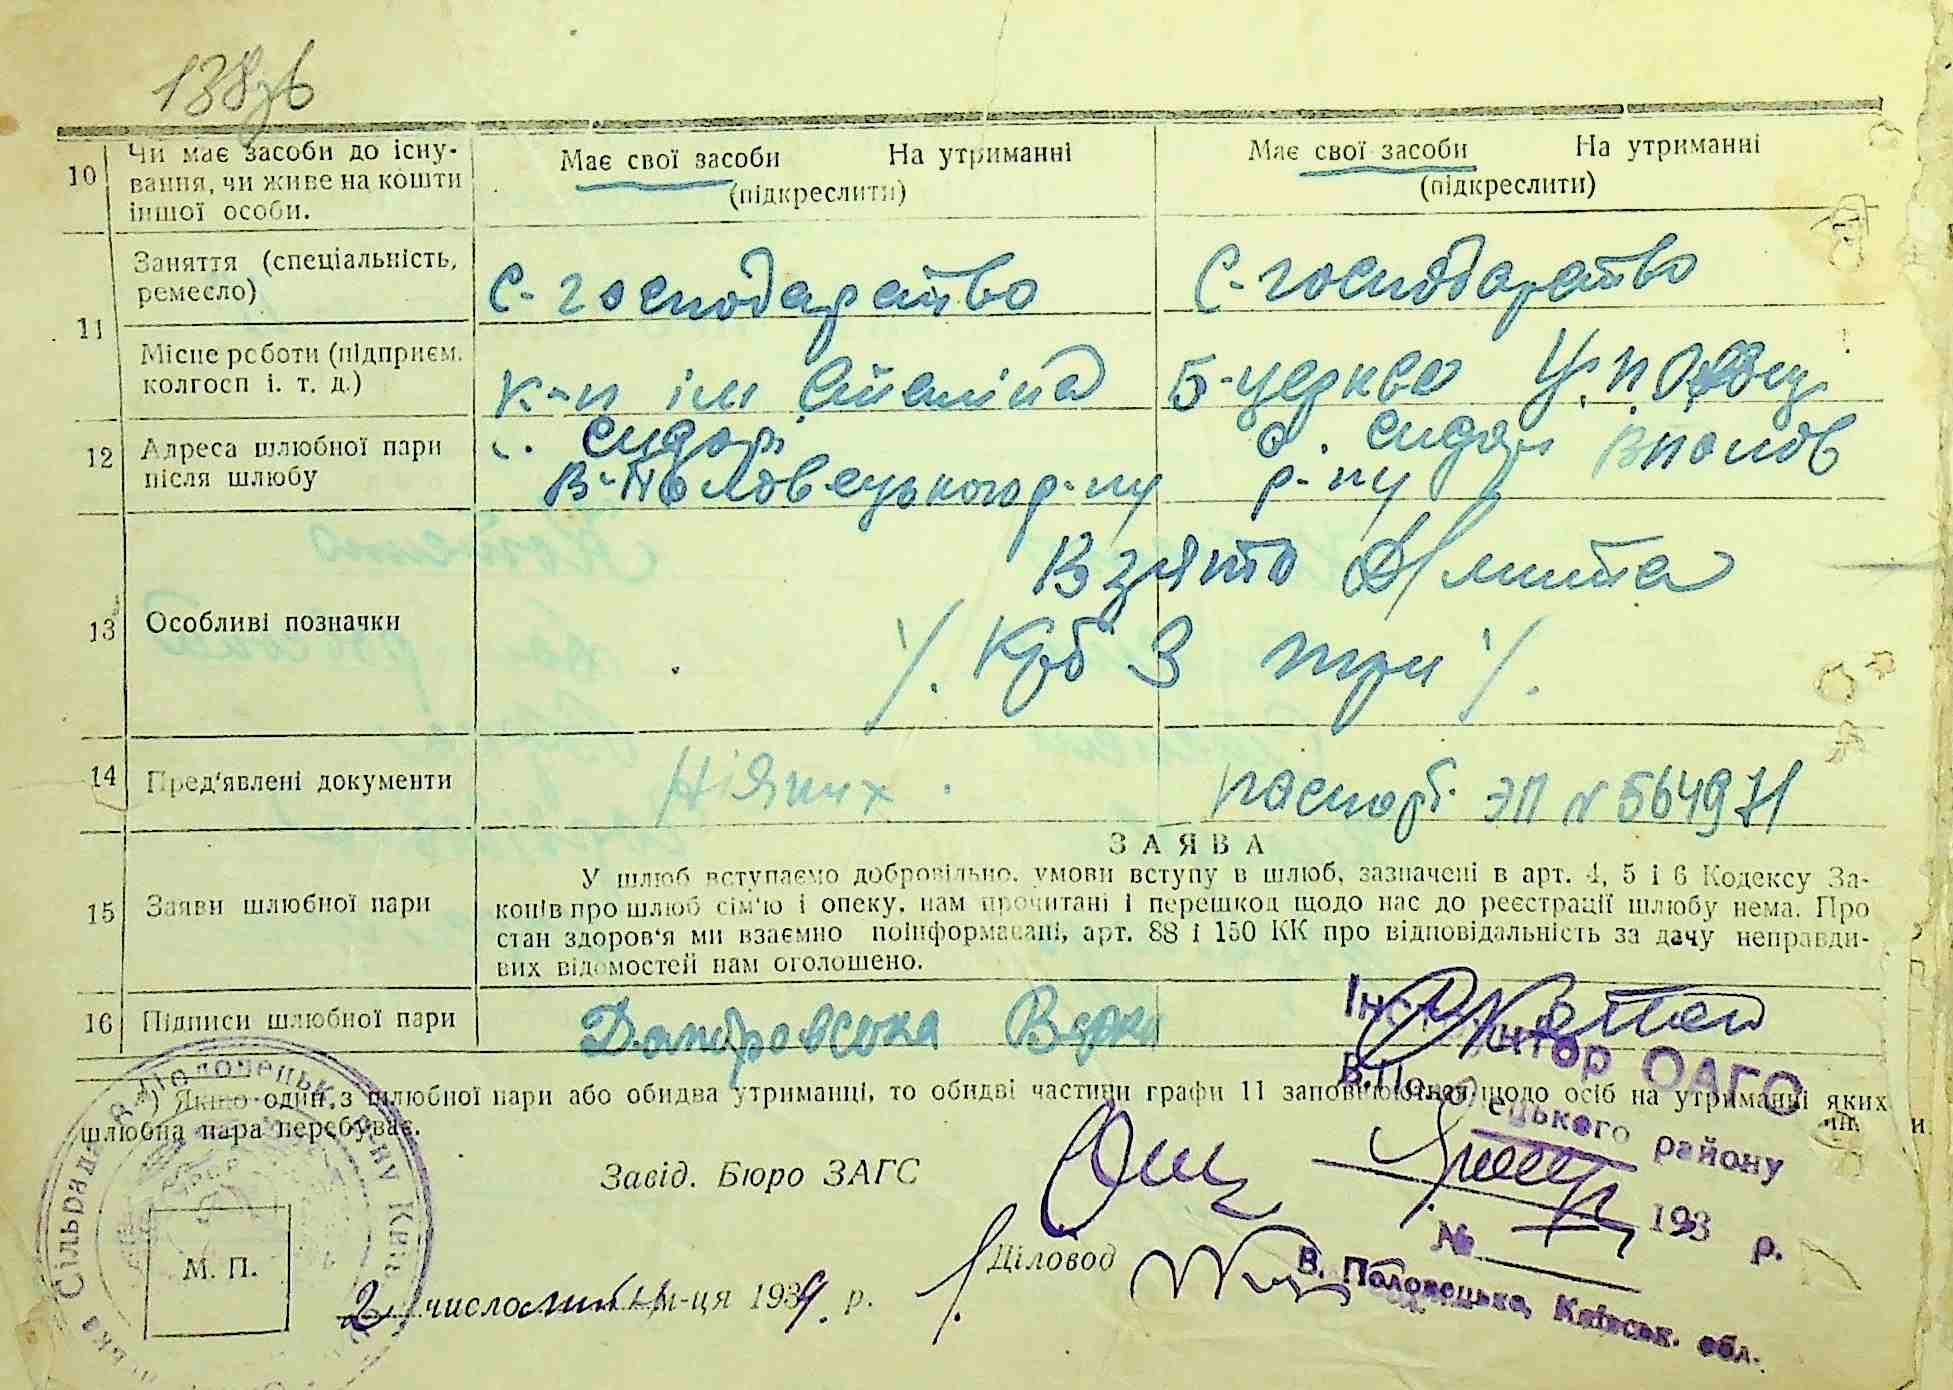 138зв
10 Чи має засоби до існу-
вання, чи живе на кошти
іншої особи.
Має свої засоби На утриманні
(підкреслити)
Має свої засоби На утриманні
(підкреслити)
11 Заняття (спеціальність,
ремесло)
С-господарство
С-господарство
Місце роботи (підприєм.
колгосп і. т. д.)
к-п ім Сталіна
Б-церква
12 Адреса шлюбної пари
після шлюбу
с. Сидорі
В-Половецького р-ну
с. Сидорі В полов
р-ну
13 Особливі позначки
Взято Мита
/. Крб 3 три /.
14 Пред'явлені документи
Ніяких.
паспорт ЭП № 564971
15 Заяви шлюбної пари
ЗАЯВА
У шлюб вступаємо добровільно. умови вступу в шлюб, зазначені в арт. 4, 5 і 6 Кодексу За-
конів про шлюб сім'ю і опеку, нам прочитані і перешкод щодо нас до реєстрації шлюбу нема. Про
стан здоров'я ми взаємно поінформавані, арт. 88 і 150 КК про відповідальність за дачу неправди-
вих відомостей нам оголошено.
16 Підписи шлюбної пари
Домбровська
Інструктор ОАГС
В. Половецького району
*) Якщо один з шлюбної пари або обидва утриманці, то обидві частини графи 11 заповнюються щодо осіб на утриманні яких
шлюбна пара перебуває.
Завід. Бюро ЗАГС
193 р.
№
Діловод
В. Половецьке, Київськ. обл.
М. П.
2 число м-ця 1939. р.
Сільрада В Половецьк. р-ну Київ